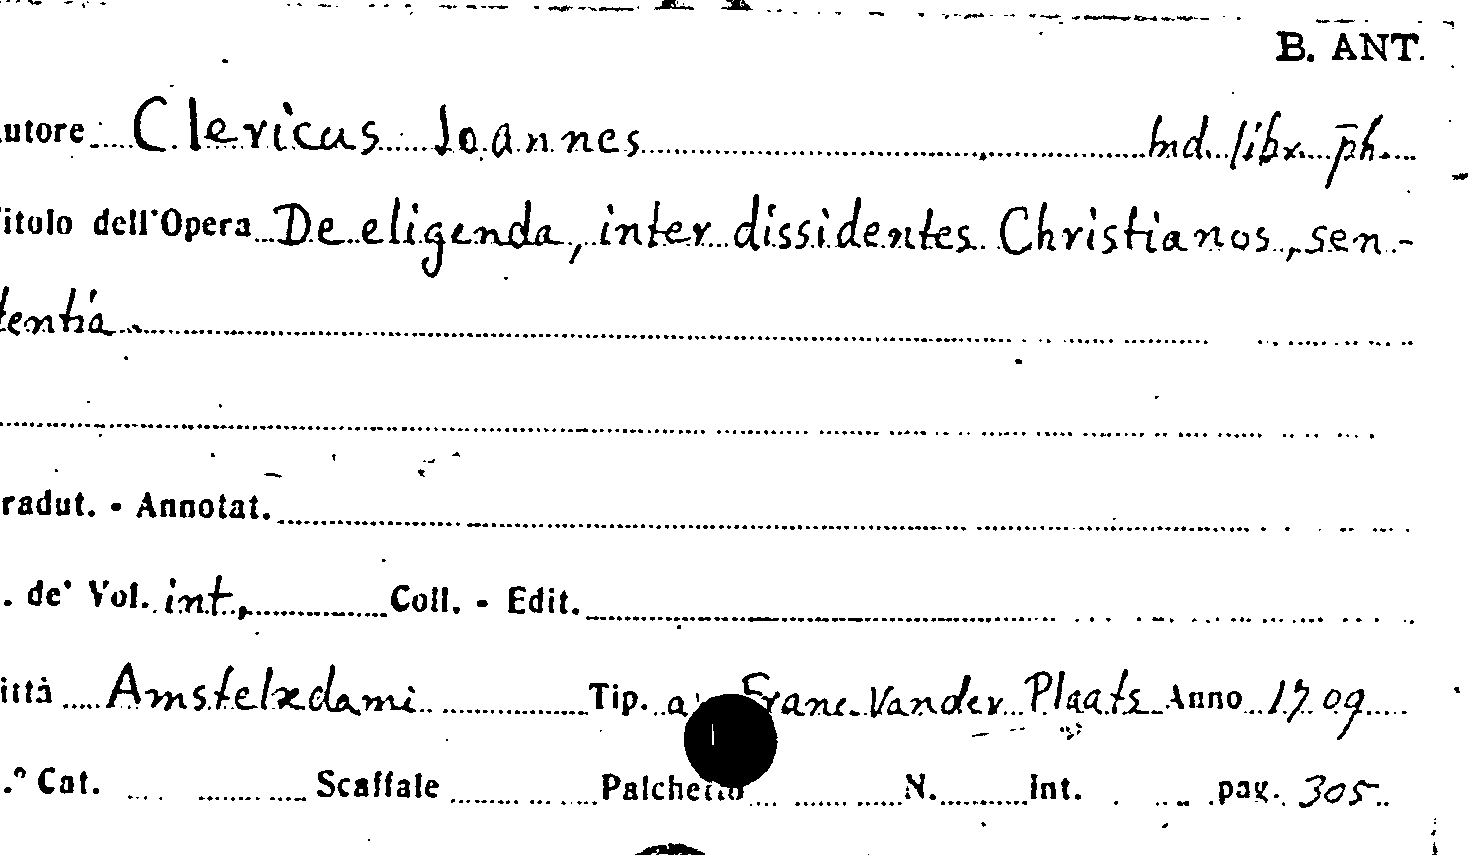 B. ANT.
utore Clericus Joannes Ind. libr. ph.
itolo dell'Opera De eligenda, inter dissidentes Christianos, sen-
tentia.
radut. - Annotat.
. de' Vol. int. Coll. - Edit.
ittà Amstelredami Tip. Franc. Vander Plaats Anno 1709
.º Cat. Scaffale Palchetto N. Int. pag. 305